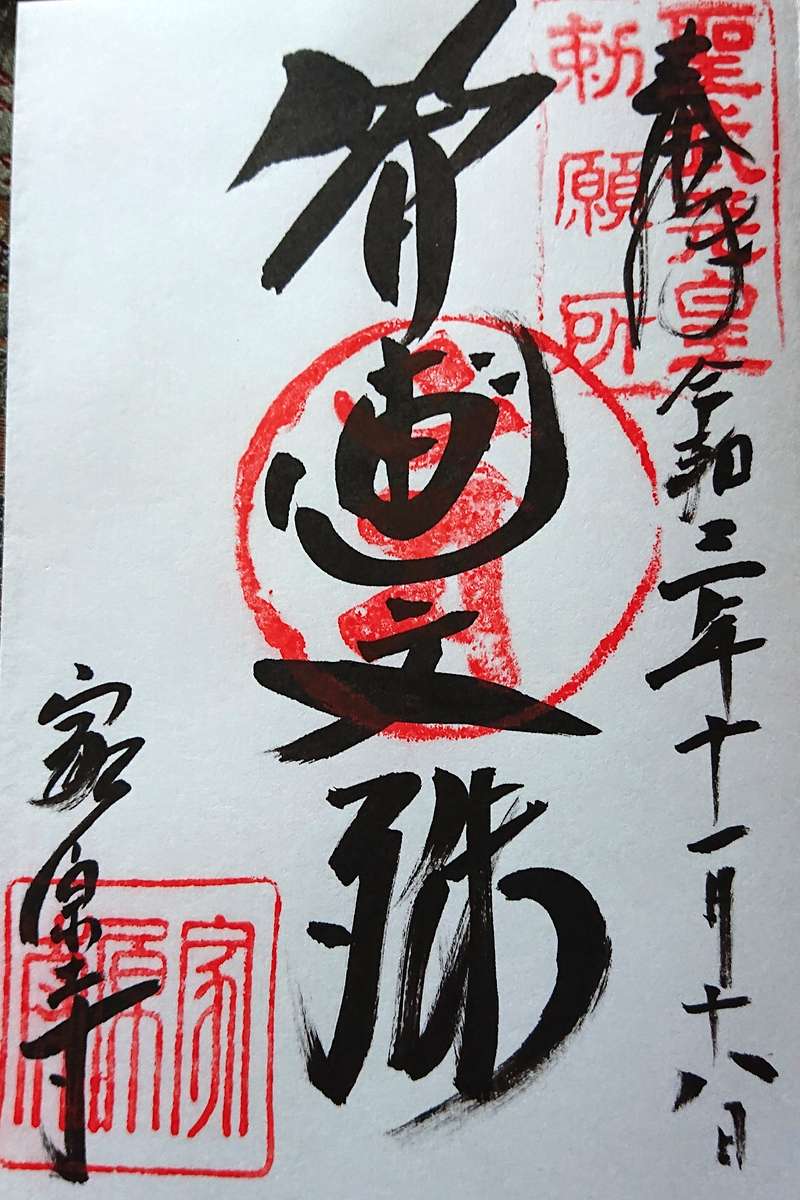 聖武天皇
勅願所
奉拝
令和三年十一月十八日
智恵文殊
家原寺
家原寺